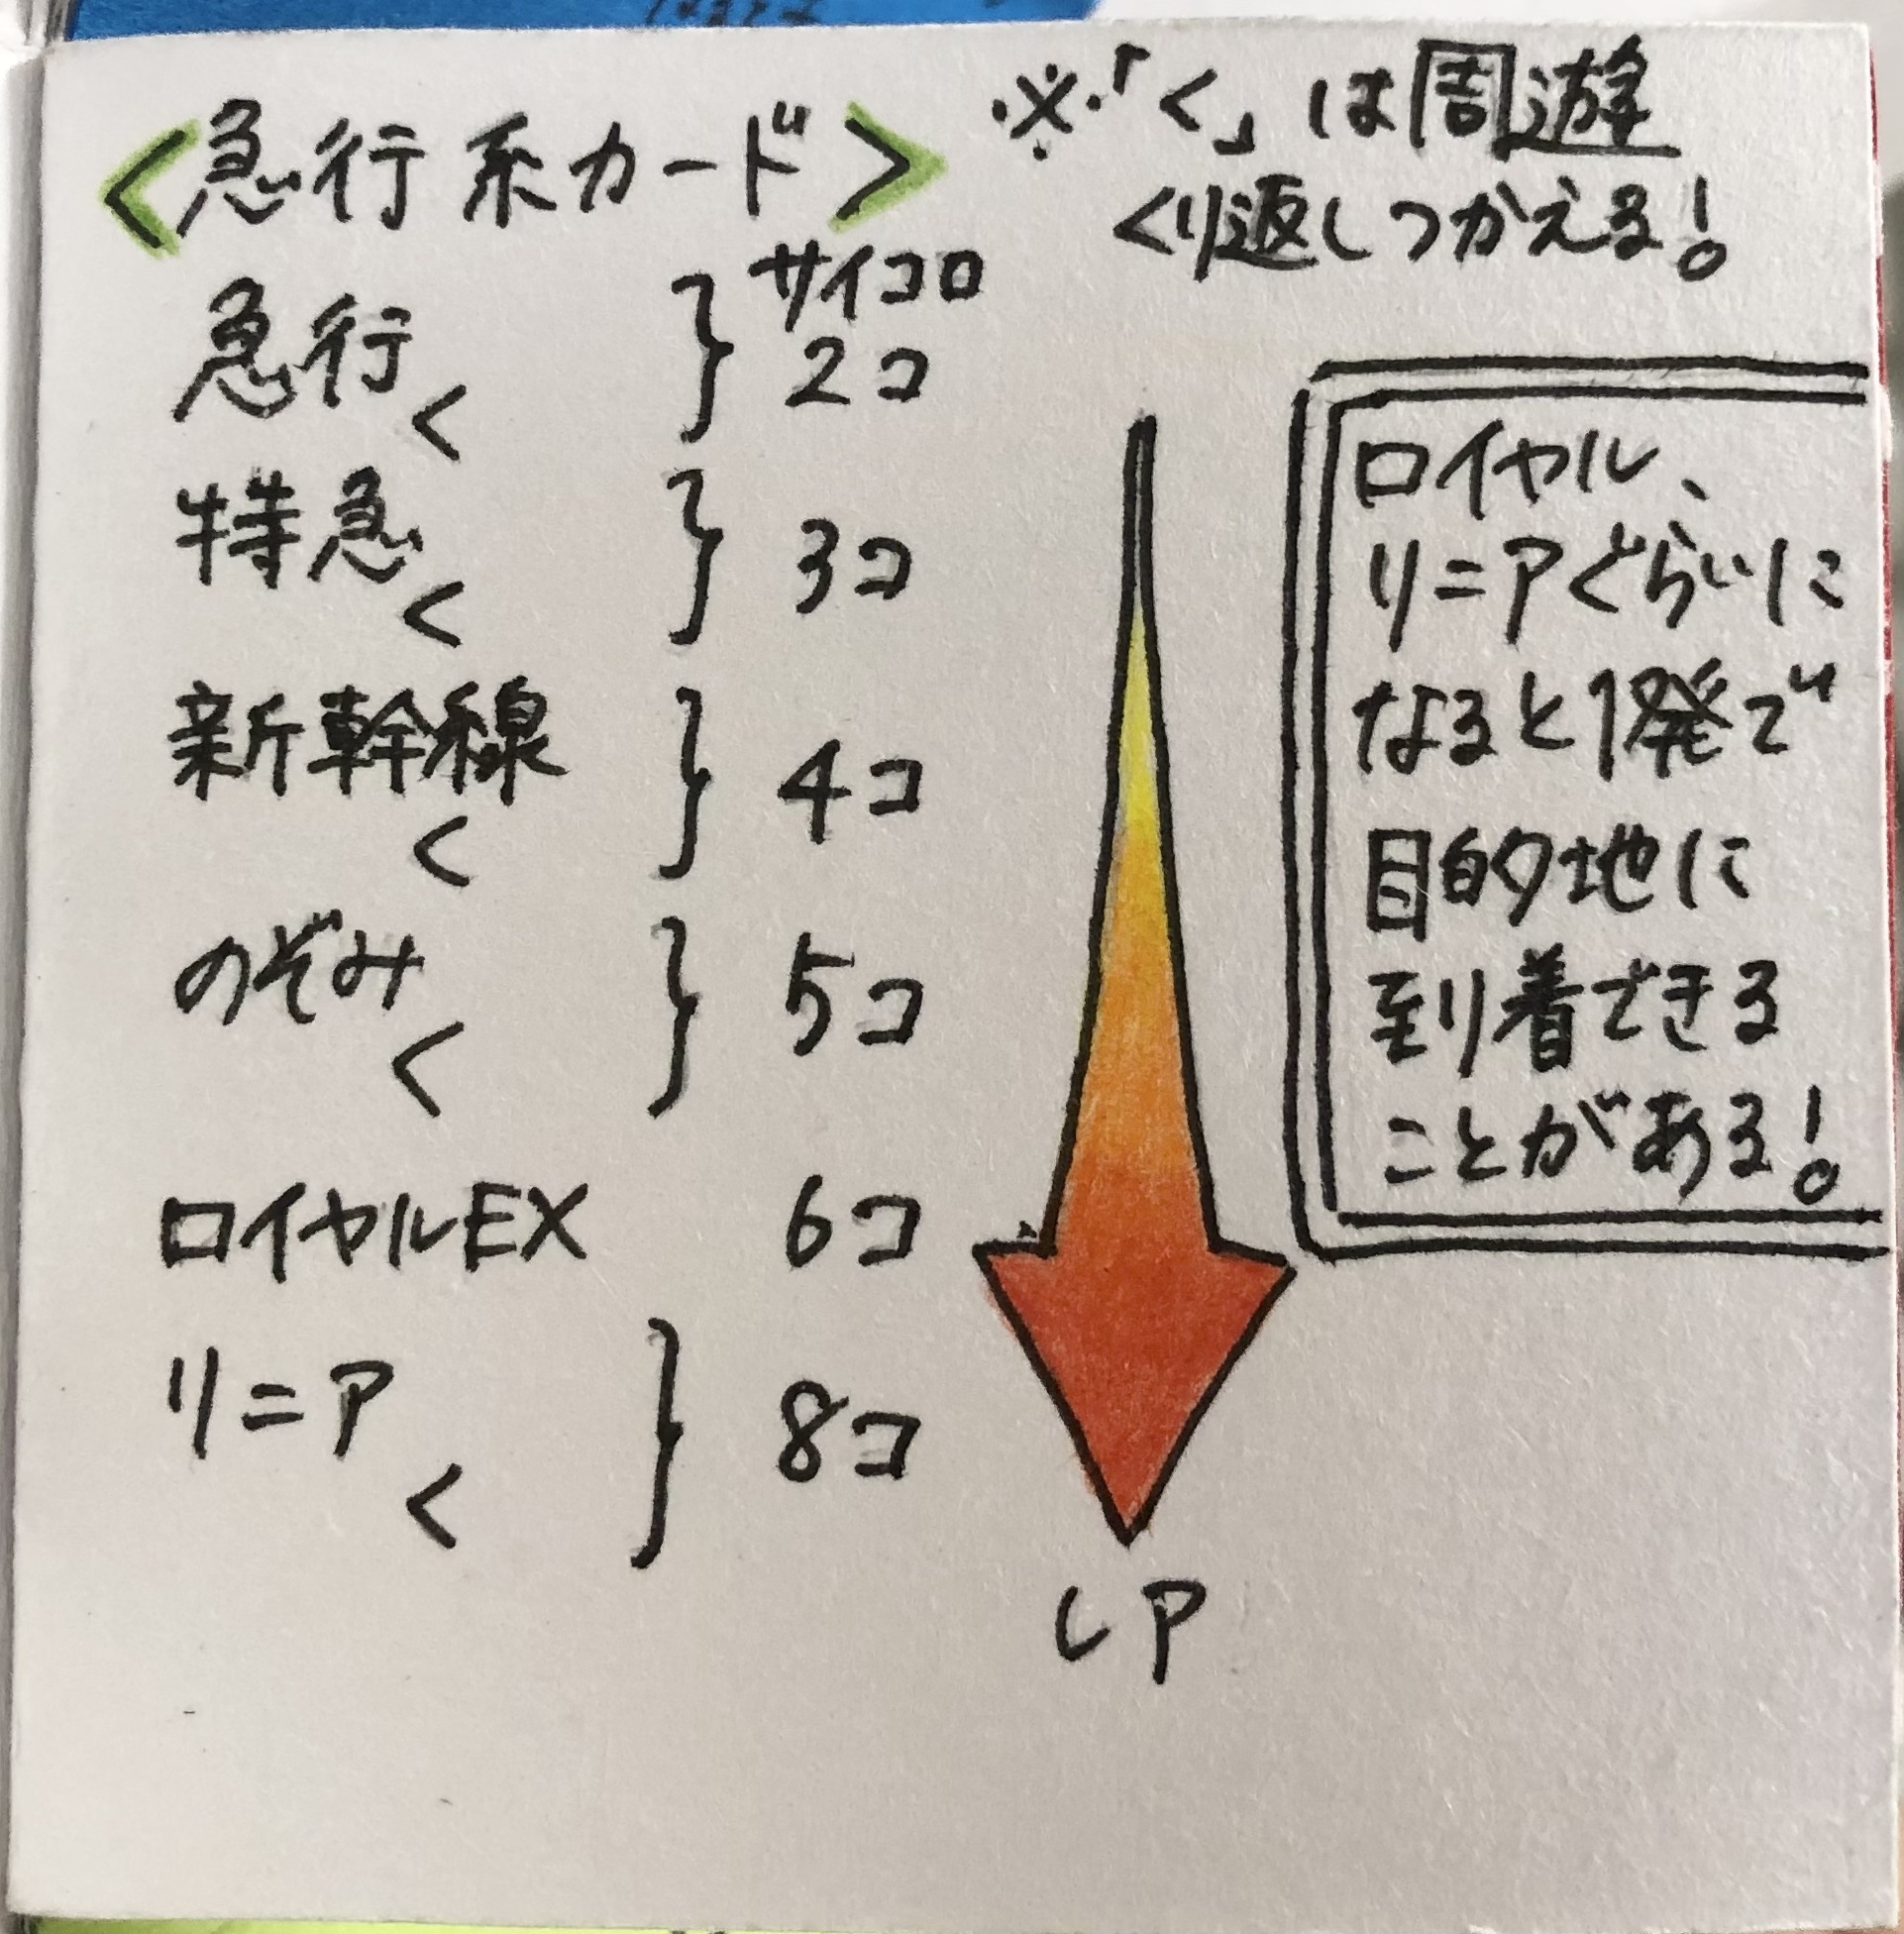 <急行系カード>
※「く」は周遊
くり返しつかえる!
急行
く
} サイコロ
2コ
特急
く
} 3コ
新幹線
く
} 4コ
のぞみ
く
} 5コ
ロイヤルEX 6コ
リニア
く
} 8コ
ロイヤル、
リニアぐらいに
なると1発で
目的地に
到着できる
ことがある!